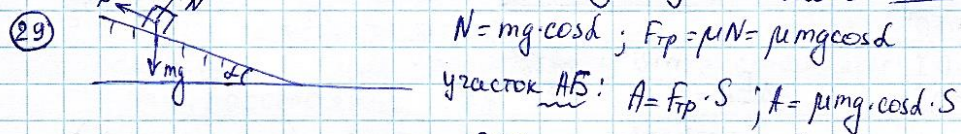 29
N
N = mg·cosα ; Fтр = μN = μmgcosα
mg
α
участок АБ: A = Fтр · S ; A = μmg·cosα·S